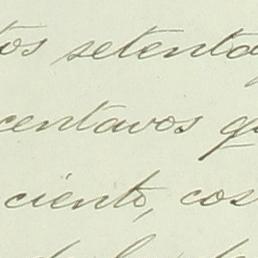 tos setenta
centavos q
ciento, cos